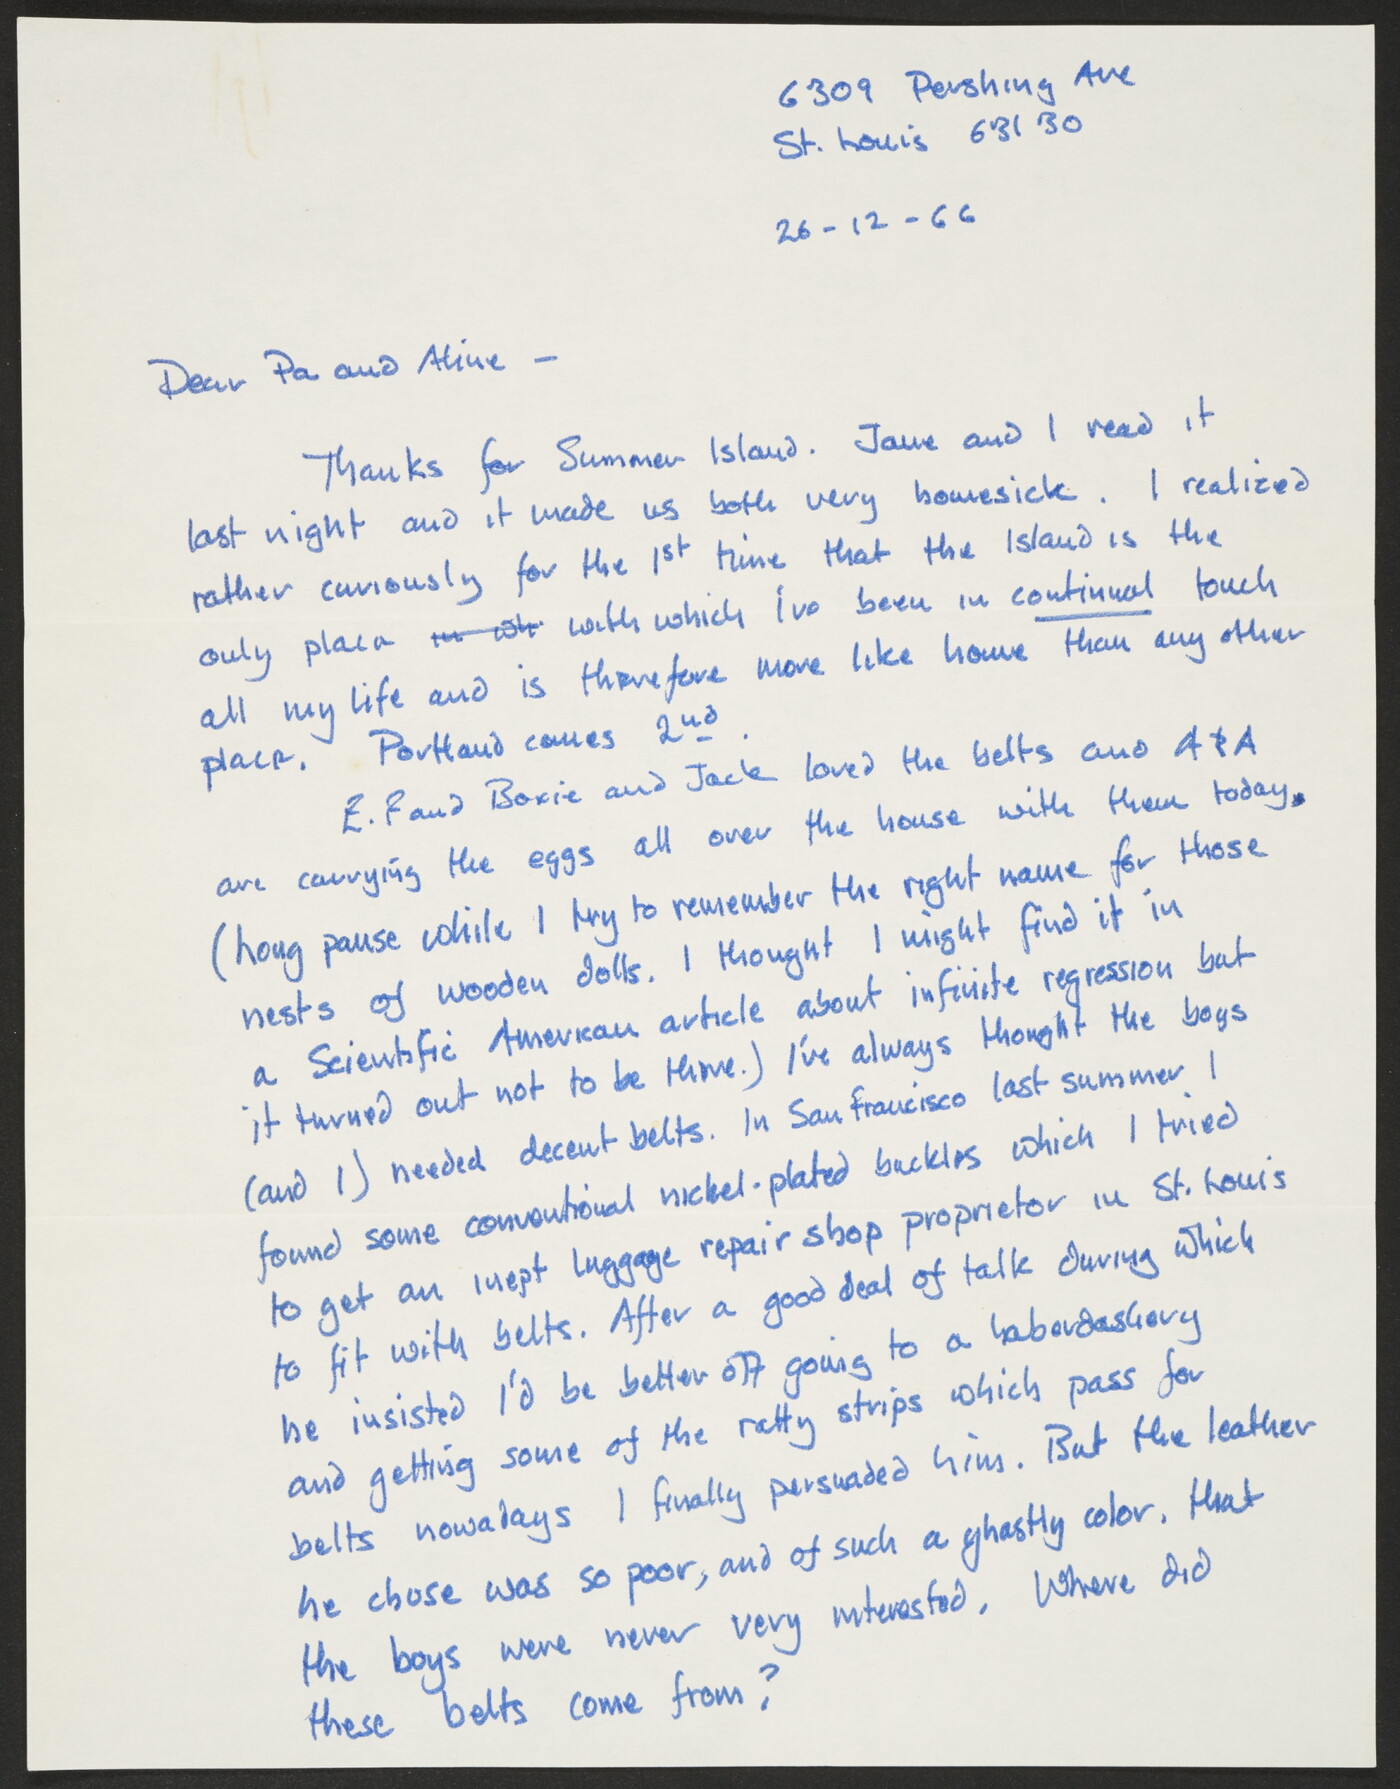 6309 Pershing Ave
St. Louis 63130
26-12-66
Dear Pa and Aline —
Thanks for Summer Island. Jane and I read it
last night and it made us both very homesick. I realized
rather curiously for the 1st time that the Island is the
only place in wh with which I've been in continual touch
all my life and is therefore more like home than any other
place. Portland comes 2nd.
E.F and Boxie and Jack loved the belts and A & A
are carrying the eggs all over the house with them today.
(Long pause while I try to remember the right name for those
nests of wooden dolls. I thought I might find it in
a Scientific American article about infinite regression but
it turned out not to be there.) I've always thought the boys
(and I) needed decent belts. In San Francisco last summer I
found some conventional nickel-plated buckles which I tried
to get an inept luggage repair shop proprietor in St. Louis
to fit with belts. After a good deal of talk during which
he insisted I'd be better off going to a haberdashery
and getting some of the ratty strips which pass for
belts nowadays I finally persuaded him. But the leather
he chose was so poor, and of such a ghastly color, that
the boys were never very interested. Where did
these belts come from?